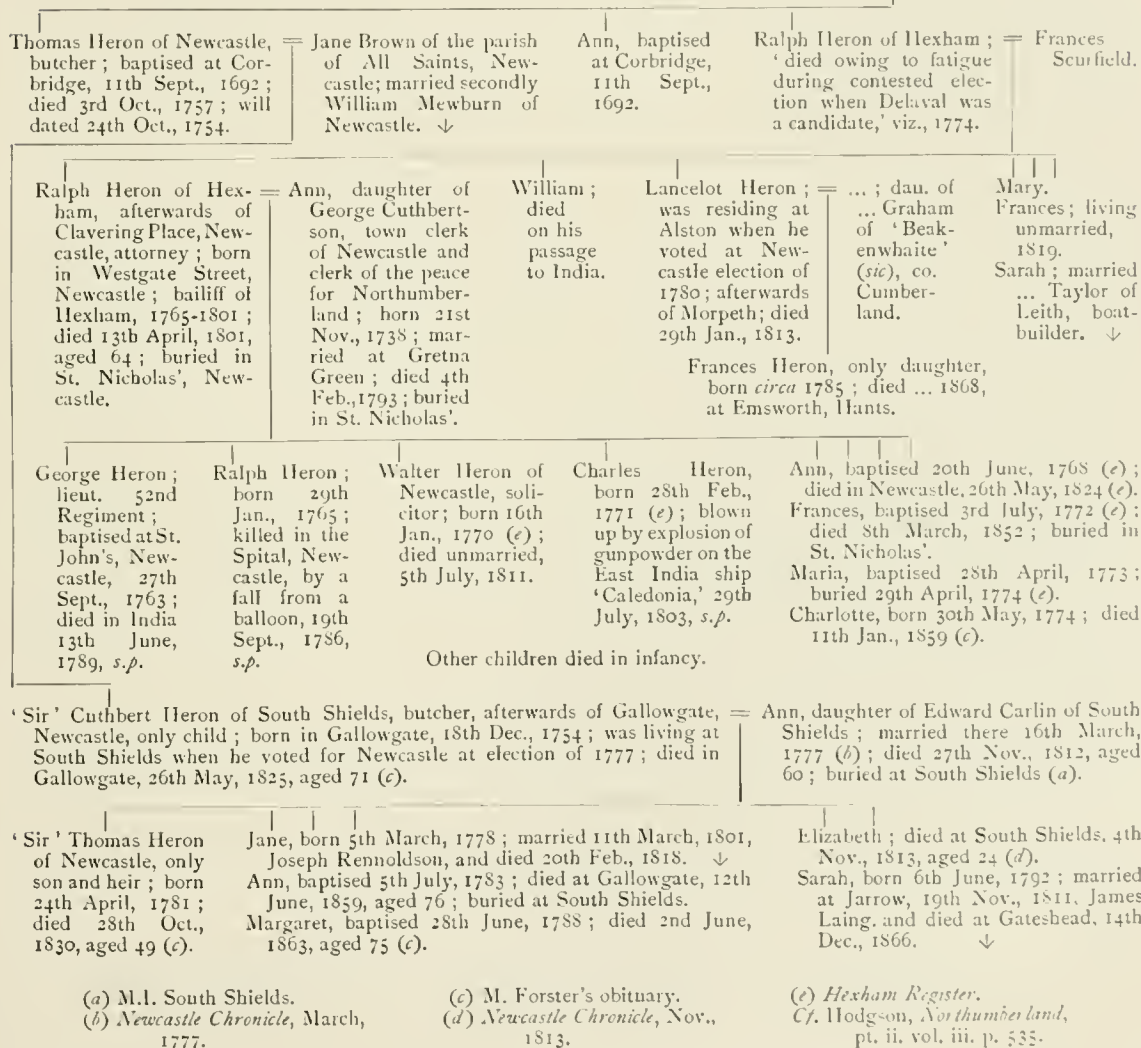 Thomas Heron of Newcastle,
butcher ; baptised at Cor-
bridge, 11th Sept., 1692 ;
died 3rd Oct., 1757 ; will
dated 24th Oct., 1754.
= Jane Brown of the parish
of All Saints, New-
castle; married secondly
William Mewburn of
Newcastle. ↓
Ann, baptised
at Corbridge,
11th Sept.,
1692.
Ralph Heron of Hexham ;
‘ died owing to fatigue
during contested elec-
tion when Delaval was
a candidate,’ viz., 1774.
= Frances
Scurfield.
Ralph Heron of Hex-
ham, afterwards of
Clavering Place, New-
castle, attorney ; born
in Westgate Street,
Newcastle ; bailiff of
Hexham, 1765-1801 ;
died 13th April, 1801,
aged 64 ; buried in
St. Nicholas’, New-
castle.
= Ann, daughter of
George Cuthbert-
son, town clerk
of Newcastle and
clerk of the peace
for Northumber-
land ; born 21st
Nov., 1738 ; mar-
ried at Gretna
Green ; died 4th
Feb., 1793 ; buried
in St. Nicholas’.
William ;
died
on his
passage
to India.
Lancelot Heron ;
was residing at
Alston when he
voted at New-
castle election of
1780 ; afterwards
of Morpeth; died
29th Jan., 1813.
= ... ; dau. of
... Graham
of ‘ Beak-
enwhaite ’
(sic), co.
Cumber-
land.
Mary.
Frances ; living
unmarried,
1819.
Sarah ; married
... Taylor of
Leith, boat-
builder. ↓
Frances Heron, only daughter,
born circa 1785 ; died ... 1868,
at Emsworth, Hants.
George Heron ;
lieut. 52nd
Regiment ;
baptised at St.
John’s, New-
castle, 27th
Sept., 1763 ;
died in India
13th June,
1789, s.p.
Ralph Heron ;
born 29th
Jan., 1765 ;
killed in the
Spital, New-
castle, by a
fall from a
balloon, 19th
Sept., 1786,
s.p.
Walter Heron of
Newcastle, soli-
citor; born 16th
Jan., 1770 (e) ;
died unmarried,
5th July, 1811.
Charles Heron,
born 28th Feb.,
1771 (e) ; blown
up by explosion of
gunpowder on the
East India ship
‘Caledonia,’ 29th
July, 1803, s.p.
Ann, baptised 20th June, 1768 (e) ;
died in Newcastle, 26th May, 1824 (e).
Frances, baptised 3rd July, 1772 (e) ;
died 8th March, 1852 ; buried in
St. Nicholas’.
Maria, baptised 28th April, 1773 ;
buried 29th April, 1774 (e).
Charlotte, born 30th May, 1774 ; died
11th Jan., 1859 (c).
Other children died in infancy.
‘ Sir ’ Cuthbert Heron of South Shields, butcher, afterwards of Gallowgate,
Newcastle, only child ; born in Gallowgate, 18th Dec., 1754 ; was living at
South Shields when he voted for Newcastle at election of 1777 ; died in
Gallowgate, 26th May, 1825, aged 71 (c).
= Ann, daughter of Edward Carlin of South
Shields ; married there 16th March,
1777 (b) ; died 27th Nov., 1812, aged
60 ; buried at South Shields (a).
‘ Sir ’ Thomas Heron
of Newcastle, only
son and heir ; born
24th April, 1781 ;
died 28th Oct.,
1830, aged 49 (c).
Jane, born 5th March, 1778 ; married 11th March, 1801,
Joseph Rennoldson, and died 20th Feb., 1818. ↓
Ann, baptised 5th July, 1783 ; died at Gallowgate, 12th
June, 1859, aged 76 ; buried at South Shields.
Margaret, baptised 28th June, 1788 ; died 2nd June,
1863, aged 75 (c).
Elizabeth ; died at South Shields, 4th
Nov., 1813, aged 24 (d).
Sarah, born 6th June, 1792 ; married
at Jarrow, 19th Nov., 1811, James
Laing, and died at Gateshead, 14th
Dec., 1866. ↓
(a) M.I. South Shields.
(b) Newcastle Chronicle, March,
1777.
(c) M. Forster’s obituary.
(d) Newcastle Chronicle, Nov.,
1813.
(e) Hexham Register.
Cf. Hodgson, Northumberland,
pt. ii. vol. iii. p. 535.